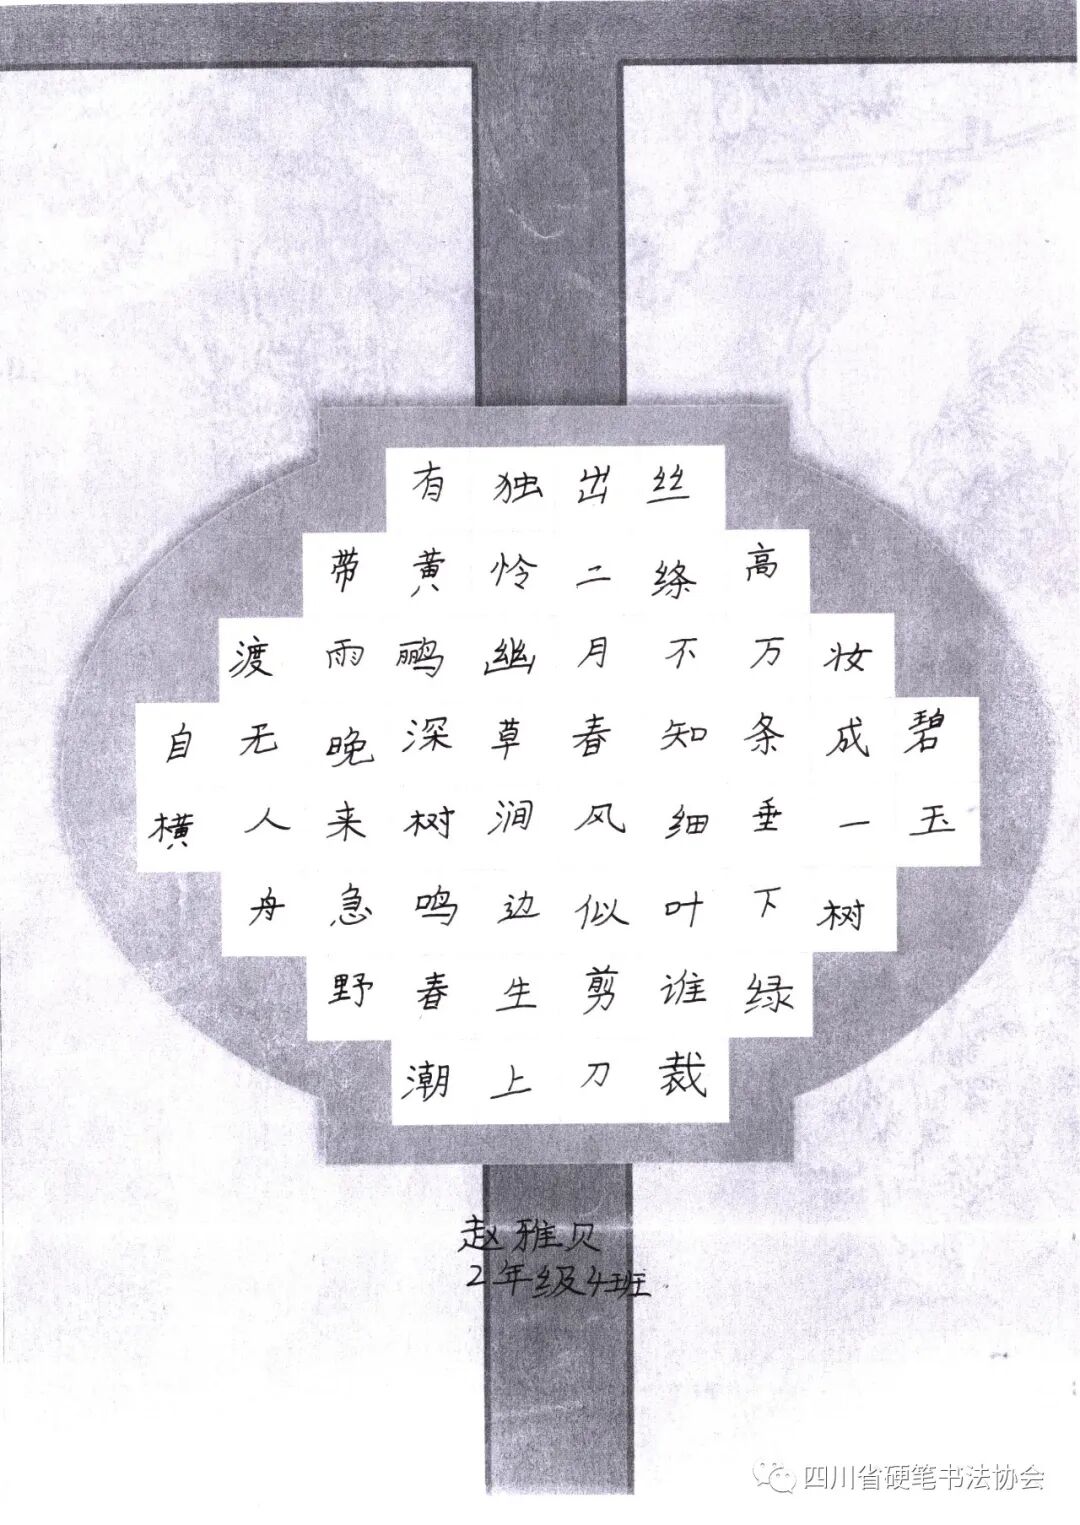 碧玉
妆成一树
高万条垂下绿
丝绦不知细叶谁裁
出二月春风似剪刀
独怜幽草涧边生上
有黄鹂深树鸣春潮
带雨晚来急野
渡无人舟
自横
赵雅贝
2年级4班
四川省硬笔书法协会